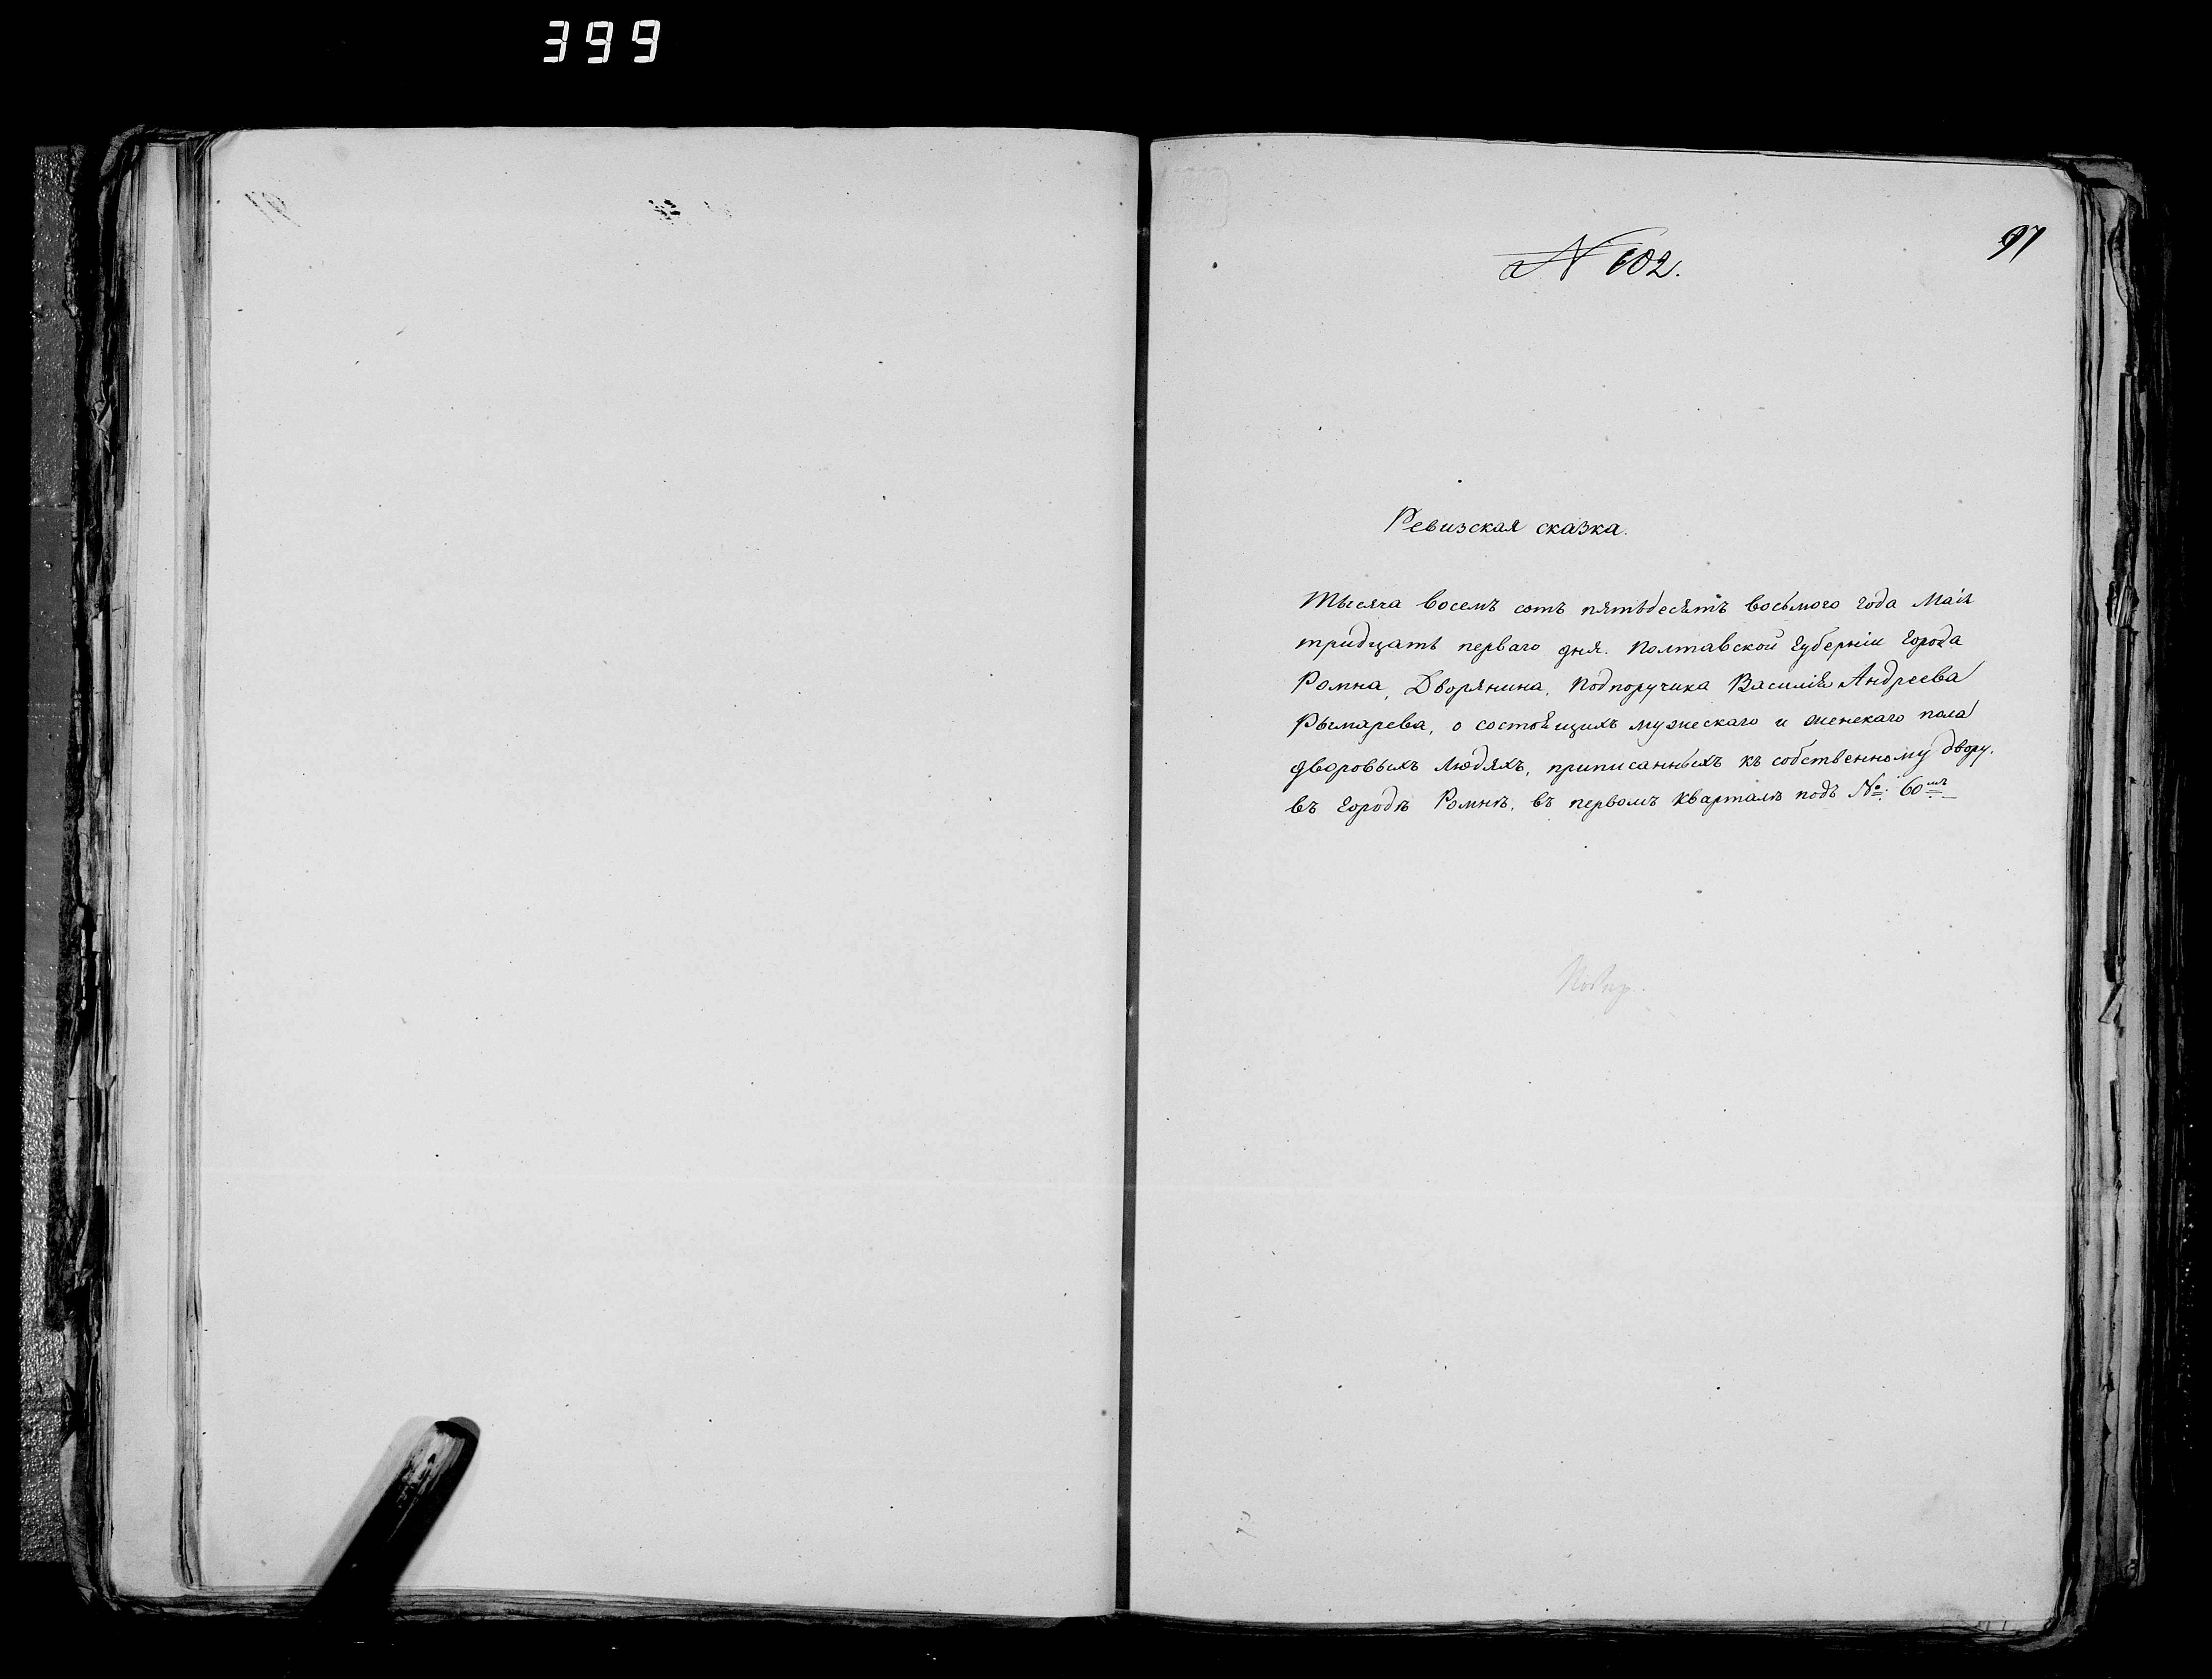 399
97
N 102.
Ревизская сказка.
Тысяча восемъ сотъ пятьдесятъ восьмого года Маія
тридцать перваго дня. Полтавской Губерніи Города
Ромна, Дворянина, Подпоручика Василія Андреева
Рымарева, о состоящихъ мужескаго и женскаго пола
дворовыхъ людяхъ, приписанныхъ къ собственному двору.
въ Городѣ Ромнѣ, въ первомъ кварталѣ подъ №: 60мъ